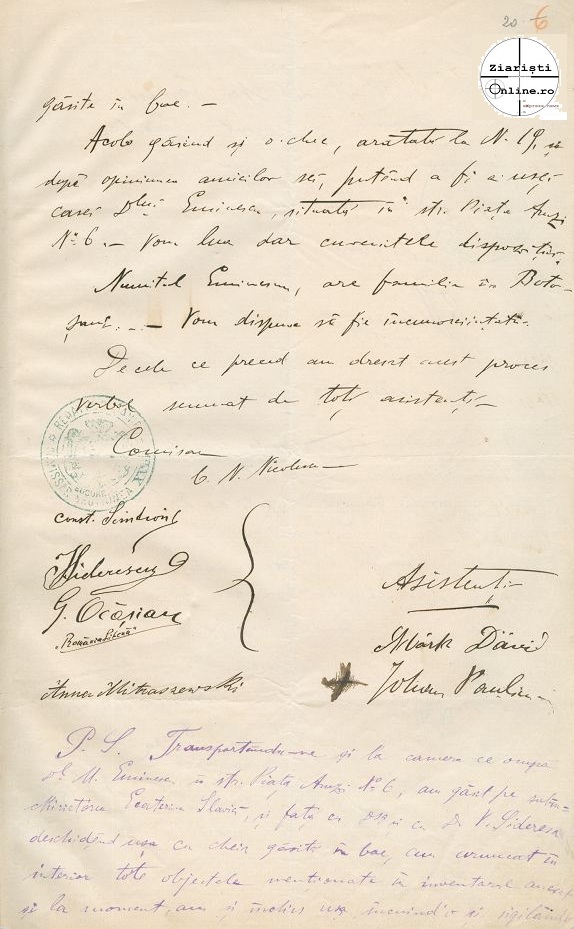 20 6
Ziariști
Online.ro
găsite în bae. —
Acolo găsind și o chee, arătată la N. 19, și
după opiniunea amicilor sĕi, putênd a fi a ușei
casei Dlui Eminescu, situată în str. Piața Amzi
No 6. — Vom lua dar cuvenitele dispozițiuni
Numitul Eminescu, are familia în Boto-
șani. — Vom dispune să fie încunosciințată.
De cele ce preced am dresat acest proces
verbal semnat de toți asistenți —
Comisar
C. N. Nicolescu
Const. Simtion
V Siderescu
G. Ocășian
"România Liberă"
Anna Mitraszewski
Asistenți
Mark Dävid
Johan Paulin
P. S. Transportându-ne și la camera ce ocupa
Dl M. Eminescu în str. Piața Amzi No 6, am găsit pe
Ecaterina Slavic, și față cu și cu Dr V. Siderescu
deschidênd ușa cu cheia găsită în bae, am aruncat în
interior tote obiectele menționate în inventarul
și la moment, am și închis ușa, încuind'o și sigilând'o